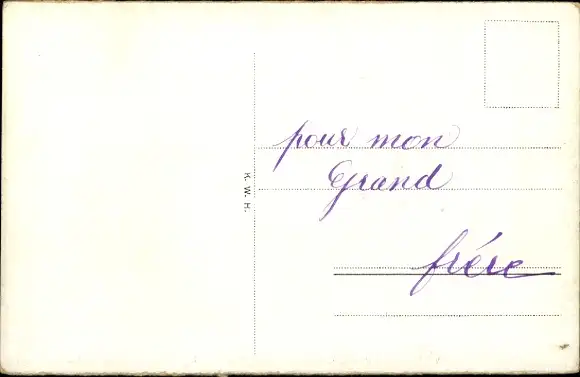 K. W. H.
pour mon
Grand
frére